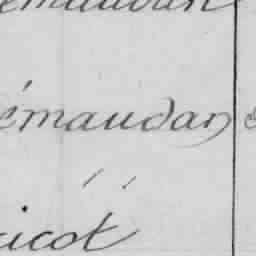 émaudan
émaudan
icot